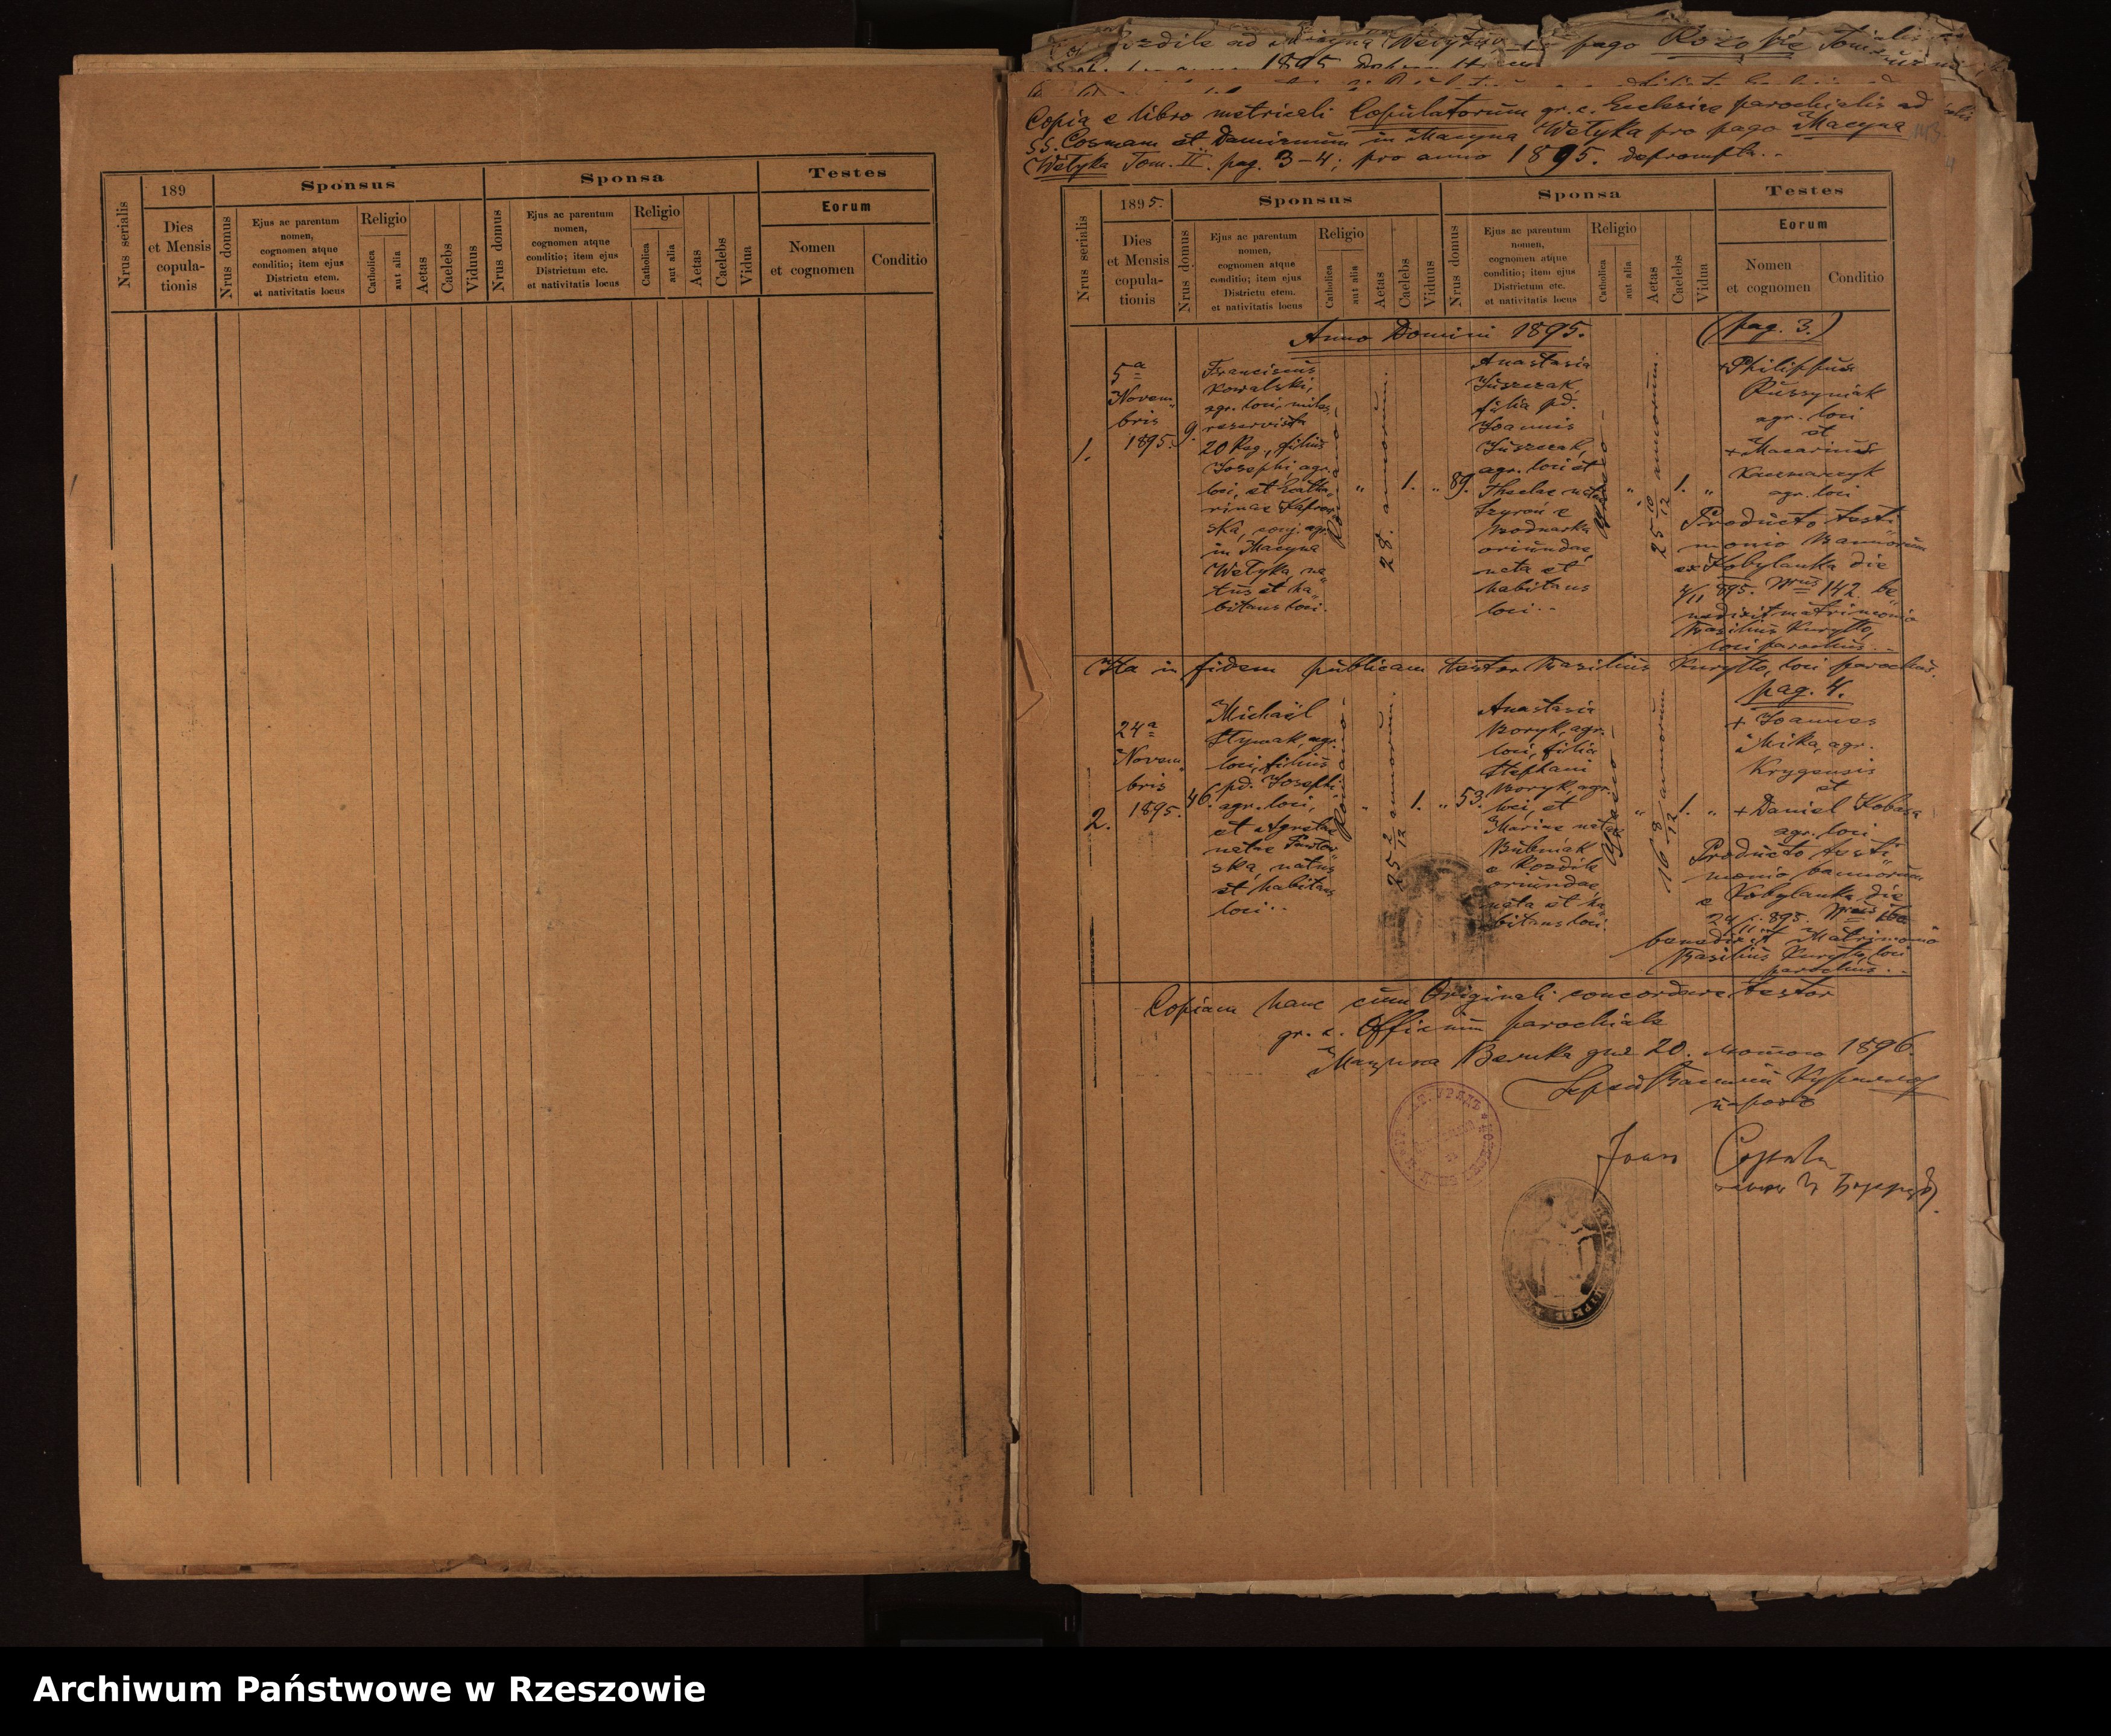 189
Sponsus
Sponsa
Testes
Nrus serialis
Dies
et Mensis
copula-
tionis
Nrus domus
Ejus ac parentum
nomen,
cognomen atque
conditio; item ejus
Districtu etem.
et nativitatis locus
Religio
Catholica
aut alia
Aetas
Caelebs
Viduus
Nrus domus
Ejus ac parentum
nomen,
cognomen atque
conditio; item ejus
Districtum etc.
et nativitatis locus
Religio
Catholica
aut alia
Aetas
Caelebs
Vidua
Eorum
Nomen
et cognomen
Conditio
pago
1895
Copia e libro metricali Copulatorum gr. c. Ecclesiae parochialis ad
SS. Cosmam et Damianum in Macyna Wełyka pro pago Macyna
Wełyka Tom. II. pag. 3-4; pro anno 1895. deprompta.
1895.
Sponsus
Sponsa
Testes
Nrus serialis
Dies
et Mensis
copula-
tionis
Nrus domus
Ejus ac parentum
nomen,
cognomen atque
conditio; item ejus
Districtu etem.
et nativitatis locus
Religio
Catholica
aut alia
Aetas
Caelebs
Viduus
Nrus domus
Ejus ac parentum
nomen,
cognomen atque
conditio; item ejus
Districtum etc.
et nativitatis locus
Religio
Catholica
aut alia
Aetas
Caelebs
Vidua
Eorum
Nomen
et cognomen
Conditio
Anno Domini 1895.
(pag. 3.)
1.
5a
Novem„
bris
1895.
9.
Franciscus
Kowalski,
agr. loci, miles
reservista
20 Reg., filius
Josephi, agr.
loci, et Catha„
rinae
ska, conj. agr.
in Macyna
Wełyka, na„
tus et ha„
bitans loci.
Romano-
28. annorum.
1.
89.
Anastasia
Juszczak,
filia pd.
Joannis
Juszczak,
agr. loci et
Theclae natae
e
Bodnarka
oriundae,
nata et
habitans
loci.
Graeco-
25 10/12 annorum.
1.
+Philippus
Russyniak
agr. loci
et
+Macarius
Kaczmarczyk
agr. loci
Producto testi„
monio Bannorum
ex Kobylanka die
4/11 895. Nrus 142. be„
nedixit matrimonio
Basilius Kuryłło,
loci parochus.
Ita in fidem publicam testor Basilius Kuryłło, loci parochus.
pag. 4.
2.
24a
Novem„
bris
1895.
46.
Michaël
Hymak, agr.
loci, filius
pd. Josephi
agr. loci,
et
natae
ska, natus
et habitans
loci.
Romano-
25 2/12 annorum.
1.
53.
Anastasia
Boryk, agr.
loci, filia
Stephani
Boryk, agr.
loci, et
Mariae natae
Bubniak
e Rozdile
oriundae,
nata et ha„
bitans loci.
Graeco-
16 8/12 annorum
1.
+ Joannes
Mika, agr.
Krygensis
et
+Daniel Kobasa
agr. loci
Producto testi„
monio bannorum
e Kobylanka die
24/11 895. Nrus
benedixit Matrimonio
Basilius Kuryłło, loci
parochus.
Copiam hanc cum Originali concordare testor
gr. c. Officium parochiale
Мацына Велика дня 20. 1896.
парох
Archiwum Państwowe w Rzeszowie